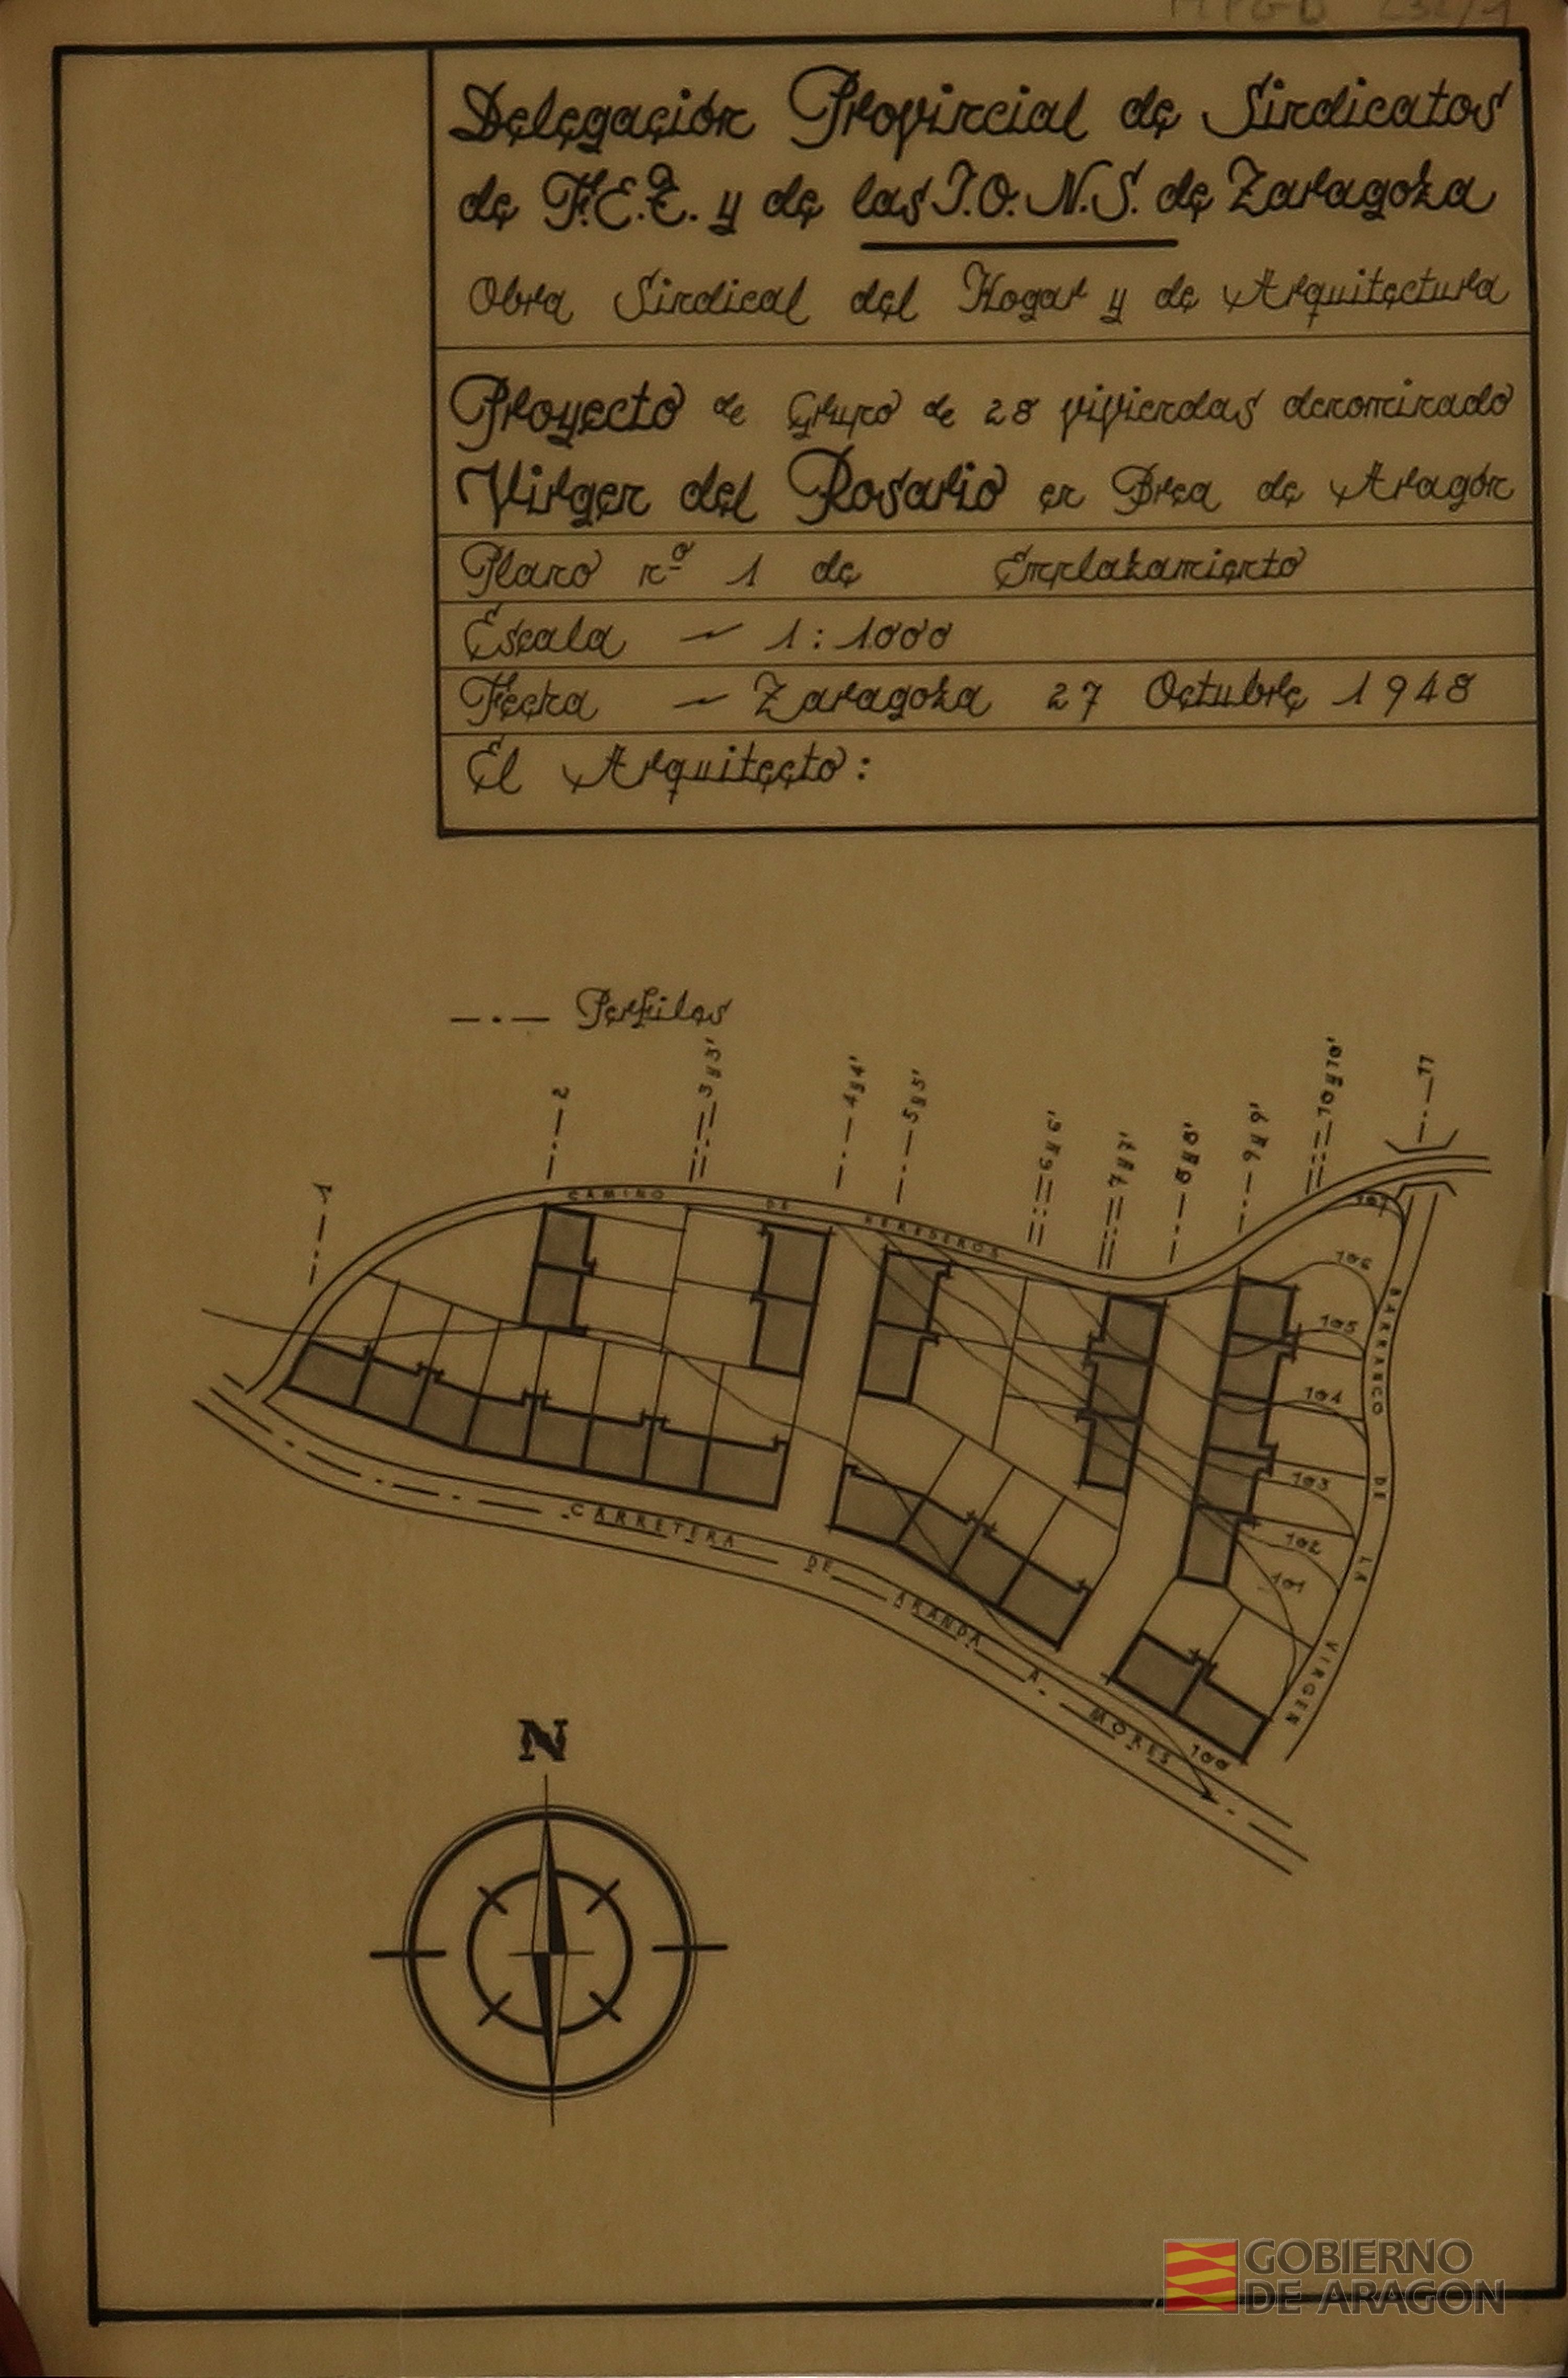 Delegación Provincial de Sindicatos
de F.E.T. y de las J.O.N.S. de Zaragoza
Obra Sindical del Hogar y de Arquitectura
Proyecto de Grupo de 28 viviendas denominado
Virgen del Rosario en Brea de Aragón
Plano nº 1 de Emplazamiento
Escala ~ 1:1000
Fecha ~ Zaragoza 27 Octubre 1948
El Arquitecto:
Perfiles
1
2
3 y 3'
4 y 4'
5 y 5'
6 y 6'
7 y 7'
8 y 8'
9 y 9'
10 y 10'
11
CAMINO DE HEREDEROS
107
106
105
104
103
102
101
100
BARRANCO DE LA VIRGEN
CARRETERA DE ARANDA A MORES
N
GOBIERNO
DE ARAGON